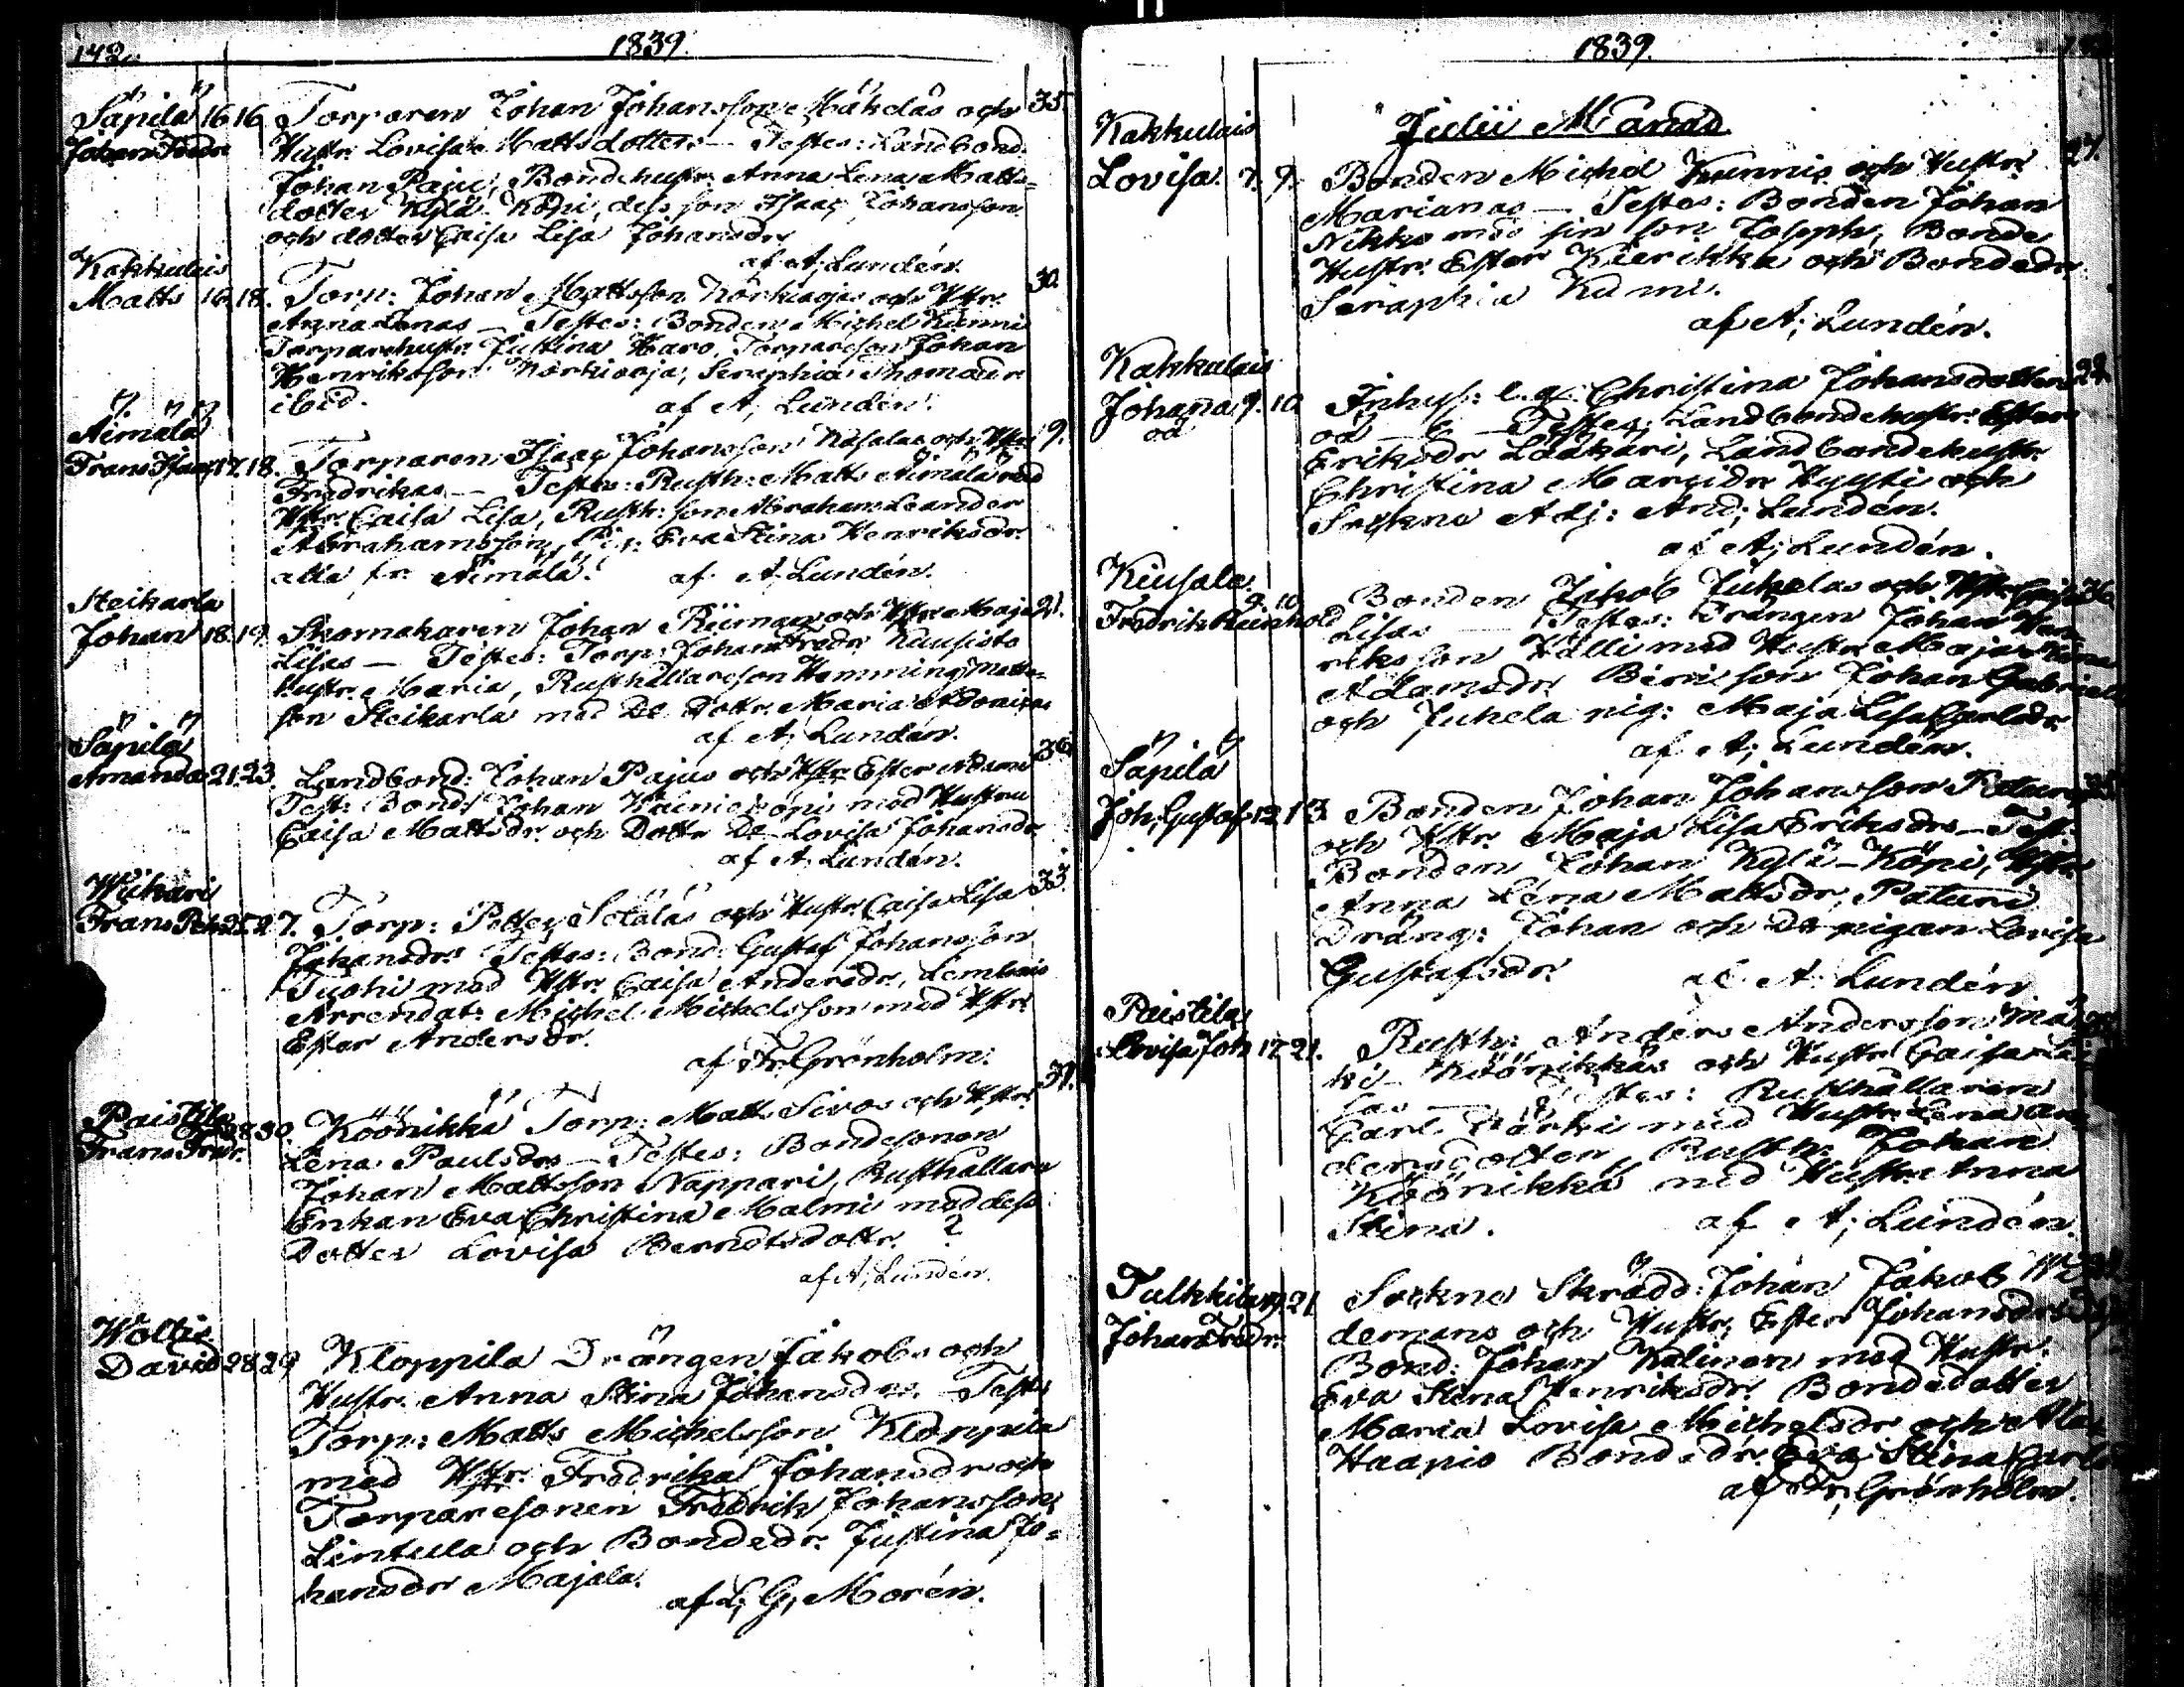 142.
1839.
Säpilä 16 16. Torparen Johan Johansson Mäkeläs och 35.
Johan Fredr. Hustr. Lovisa Mattsdotters — Testes: Landbond.
Johan Paju, Bondehustr. Anna Lena Matts-
dotter Kylä-Köpi, dess son Isaac Johansson
och dotter Caisa Lisa Johansdr.
af A; Lundén.
Kakkulais
Matts 16. 18. Torp: Johan Mattsson Korkiaojas och Hstr. 30.
Anna Lenas — Testes: Bonden Michel Kunni
Torparehustr. Justina Haro, Torpareson Johan
Henriksson Korkiaoja, Seraphia Thomasdr
ibid. af A; Lundén.
Äimälä
Frans Isaac 17. 18. Torparen Isaac Johansson Kasalas och Hstr 9.
Fredrikas — Testes: Rusth: Matts Äimälä med
Hstr. Caisa Lisa, Rusth: son Abraham Leander
Abrahamsson, Pig: Eva Stina Henriksdr.
alla fr. Äimälä. af A; Lundén.
Steikarla
Johan 18. 19. Skomakaren Johan och Hstr. Maja 21.
Lisas — Testes: Torp: Johan Fredr. Kuusisto
hustr. Maria, Rusthållareson Hemming Matts-
son Steikarla med De Dottr. Maria
af A; Lundén.
Säpilä
Amanda 21. 23. Landbond: Johan Pajus och Hstr Ester Adams 36.
Test: Bond: Johan med Hustru
Caisa Mattsdr. och Dottr De Lovisa Johansdr
af A; Lundén.
Wiikari
Frans Petter 25. 27. Torp: Petter Seläläs och Hustr. Caisa Lisa 33.
Johansdrs Testes: Bond: Gustaf Johansson
Tuohi med Hstr. Caisa Andersdr, Lembois
Arrendat: Michel Michelsson med Hstr.
Ester Andersdr.
af Fr. Grönholm:
Paistila
Frans Fredr. 28 30. Köönikkä Torp: Matts Sivos och Hstr. 37.
Lena Paulsdrs — Testes: Bondesonen
Johan Mattsson Nappari, Rusthållare
Enkan Eva Christina Malmi med dess
Dotter Lovisa Berndtsdottr. ?
af A; Lundén.
Woltis
David 28. 29 Kloppila Drängen Jakobs och
Hustr. Anna Stina Johansdrs. — Testes
Torp: Matts Michelsson Kloppila
med Hstr. Fredrika Johansdr och
Torparesonen Fredrik Johansson
Lintula och Bondedr. Justina Jo-
hansdr Majala.
af L; G; Morén.
1839.
Julii Månad
Kakkulais
Lovisa. 7. 9. Bonden Michel Kunnis och Hustr. 27.
Marianas — Testes: Bonden Johan
Nikko med sin son Joseph, Bonde
Hustr. Ester Kierikka och Bondedr.
Seraphia Kumi.
af A; Lundén.
Kakkulais
Johanna 9. 10. Inhys: e. q. Christina Johansdotters 22.
oä oä — Testes: Landbondehustr. Ester
Eriksdr Lääkäri, Landbondehustr.
Christina Hyyti och
Sockne Adj: And; Lundén.
af A; Lundén.
Kiusala
Fredrik Reinhold 9. 10. Bonden Jakob Juhelas och Hstr. Caisa 36.
Lisas — Testes: Drängen Johan Hen-
riksson Hälli med Hustr. Maja Stina
Adamsdr. son Johan Gabriel
och Juhela pig: Maja Lisa Carlsdr.
af A; Lundén.
Säpilä
Joh; Gustaf 12. 13. Bonden Johan Johansson
och Hstr. Maja Lisa Eriksdrs — Test:
Bonden Johan Kylä-Köpi, Hstr.
Anna Lena Mattsdr, Paturi
Dräng: Johan och Do pigan Lovisa
Gustafsdr. af A. Lundén.
Paistila
Lovisa Joh. 17. 21. Rusth: Anders Andersson Mä-
ki-Köönikkäs och Hustr. Caisa Li-
sas — Testes: Rusthållaren
Carl Värki med Hustr. Lena An-
dersdotter, Rusth: Johan
Köönikkä med Hustr. Anna
Stina. af A; Lundén.
Tulkkila 19. 21. Sockne Skrädd: Johan Jakob
Johan Fredr. demans och Hustr. Ester Johansdrs
Bond: Johan Kalinen med Hustr.
Eva Stina Henriksdr. Bondedotter
Maria Lovisa Michelsdr och
Haapio Bondedr. Eva Stina Carls
af Fr; Grönholm.